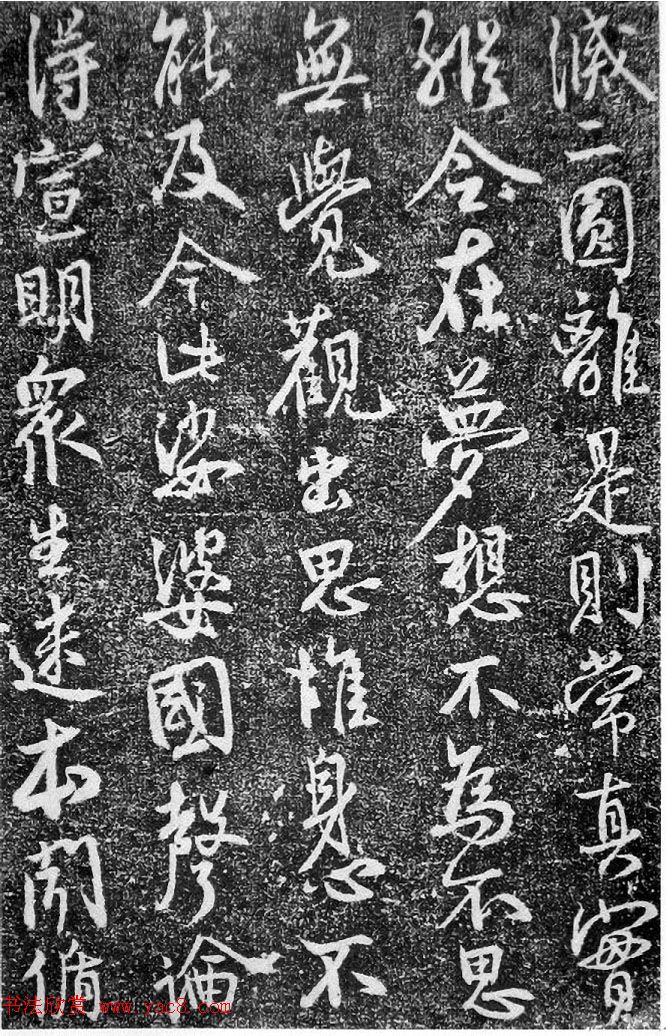 滅二圓離是則常真實
縱令在夢想不為不思
無覺觀出思惟身心不
能及今此娑婆國聲論
得宣明眾生迷本聞循
书法欣赏 www.yac8.com